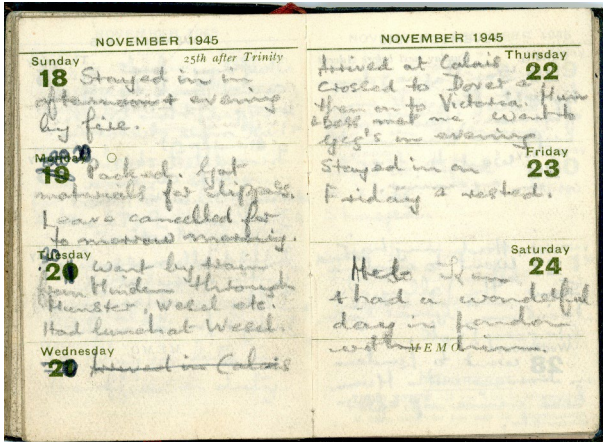 NOVEMBER 1945
Sunday 25th after Trinity
18 Stayed in in
afternoon & evening
by fire.
Monday
19 Packed. Got
materials for slippers.
Leave cancelled for
tomorrow morning.
Tuesday
20 Went by train
from Minden through
Munster, Wesel etc.
Had lunch at Wesel.
Wednesday
Arrived in Calais
NOVEMBER 1945
Thursday
22
Arrived at Calais
crossed to Dover &
then on to Victoria. Mum
& Boss met me. Went to
in evening
Friday
23
Stayed in on
Friday & rested.
Saturday
24
Met Ken
& had a wonderful
day in London
with him.
MEMO